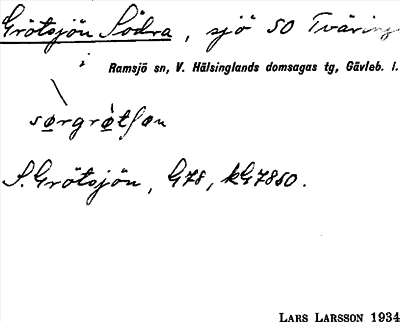 Grötsjön Södra, sjö SO Tväring
i
Ramsjö sn, V. Hälsinglands domsagas tg, Gävleb. l.
sørgrøtʃøn
S. Grötsjön, G78, kG7850.
LARS LARSSON 1934